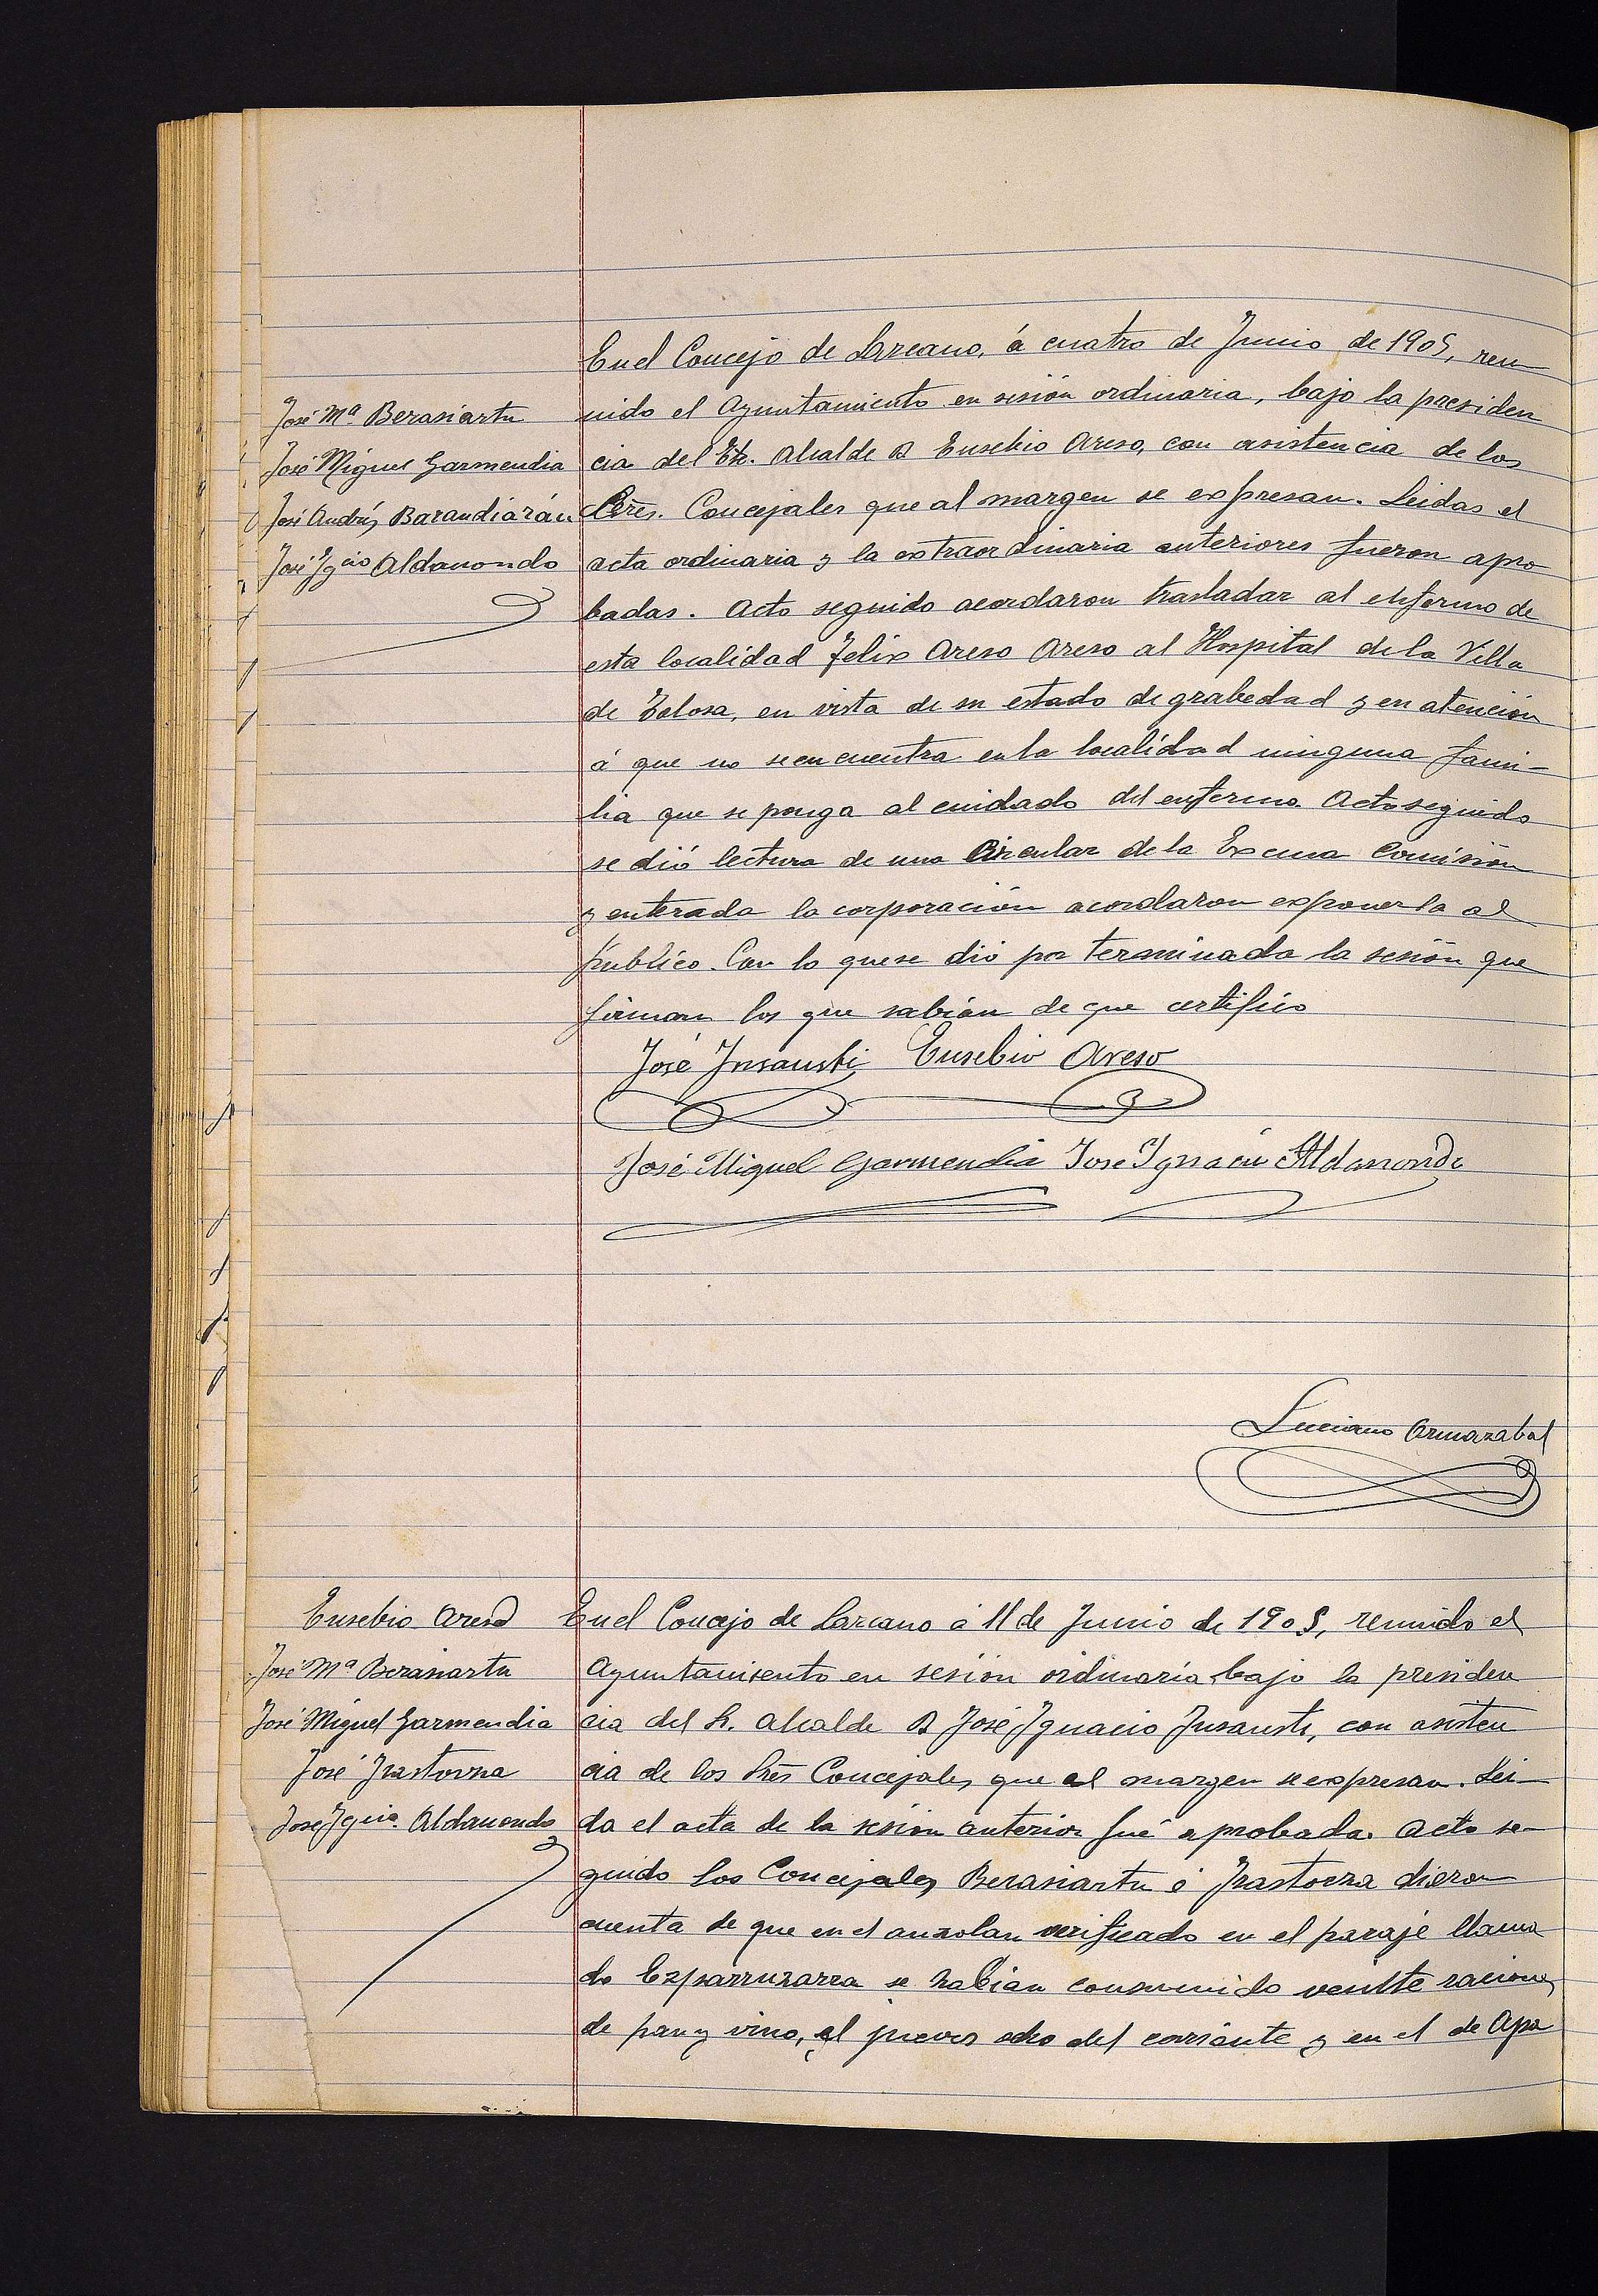 En el Concejo de Lazcano, á cuatro de Junio de 1905, reu
nido el Ayuntamiento en sesión ordinaria, bajo la presiden
cia del Sr. Alcalde D Eusebio Areso, con asistencia de los
Sres. Concejales que al margen se expresan. Leidas el
acta ordinaria y la extraordinaria anteriores fueron apro
badas. Acto seguido acordaron trasladar al enfermo de
esta localidad Felix Areso Areso al Hospital de la Villa
de Tolosa, en vista de su estado de grabedad y en atención
á que no se encuentra en la localidad ninguna fami-
lia que se ponga al cuidado del enfermo. Acto seguido
se dió lectura de una Circular de la Excma Comisión
y enterada la corporación acordaron exponerla al
público. Con lo que se dió por terminada la sesión que
firman los que sabían de que certifico
José Mª Berasiartu
José Miguel Garmendia
José Andrés Barandiarán
José Ygcio Aldanondo
José Insausti Eusebio Areso
José Miguel Garmendia Jose Ygnacio Aldanondo
Luciano Armazabal
Eusebio Areso
José Mª Berasiartu
José Miguel Garmendia
José Irastorza
José Ygcio. Aldanondo
En el Concejo de Lazcano á 11 de Junio de 1905, reunido el
Ayuntamiento en sesión ordinaria bajo la presiden
cia del Sr. Alcalde D José Ygnacio Insausti, con asisten
cia de los Sres Concejales que al margen se expresan. Lei-
da el acta de la sesión anterior fué aprobada. Acto se-
guido los Concejales Berasiartu é Irastorza dieron
cuenta de que en el auzolan verificado en el paraje llama
do Ezparruzarra se habían consumido veinte raciones
de pan y vino, el jueves ocho del corriente y en el de Apa